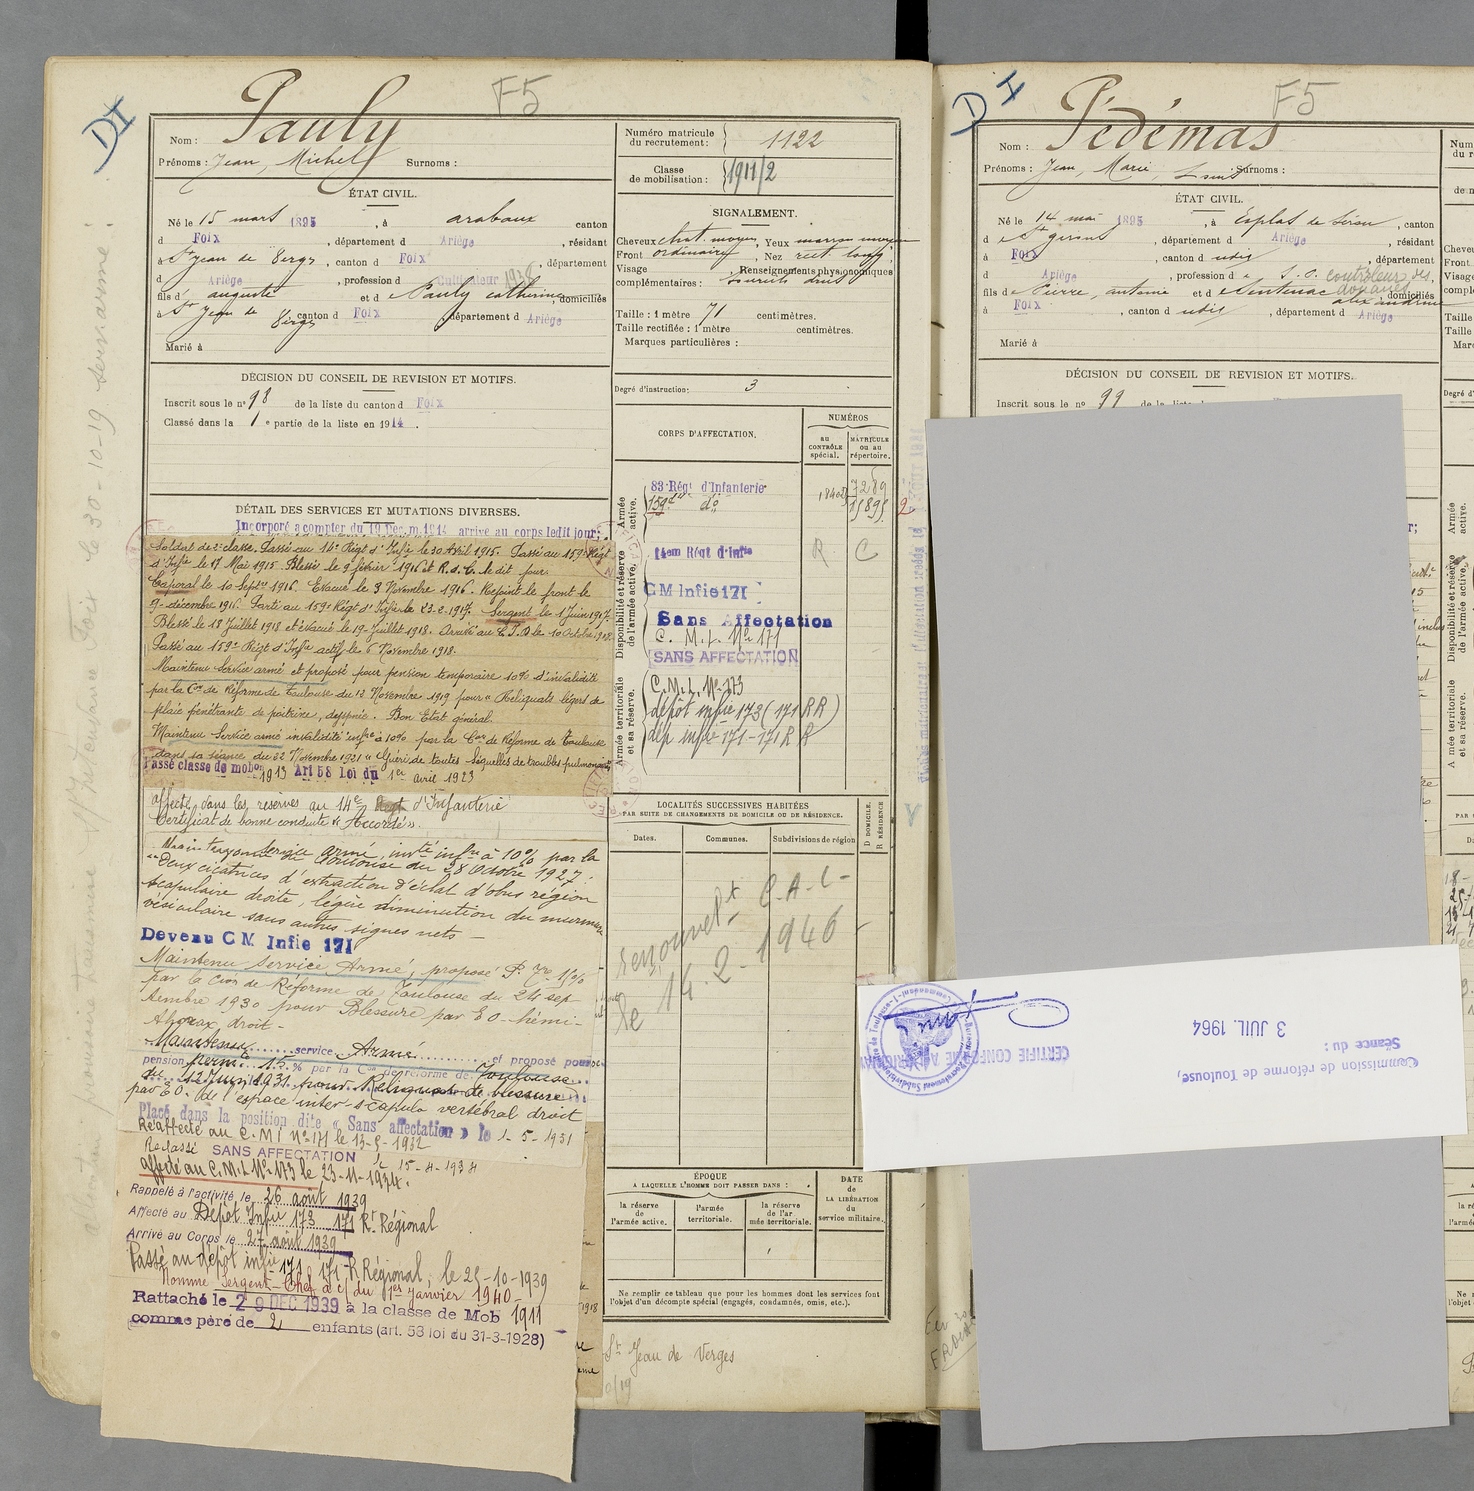 DI
F5
Nom : Pauly
Prénoms : Jean, Michel Surnoms :
Numéro matricule du recrutement : 1122
Classe de mobilisation : 1911/2
ÉTAT CIVIL.
Né le 15 mars 1895, à arabaux canton
d Foix, département d Ariège, résidant
à St Jean de Verges, canton d Foix, département
d Ariège, profession d Cultivateur 1938
fils d' auguste et d e Pauly catherine domiciliés
à St Jean de Verges canton d Foix, département d Ariège
Marié à
DÉCISION DU CONSEIL DE REVISION ET MOTIFS.
Inscrit sous le no 98 de la liste du canton d Foix
Classé dans la 1 e partie de la liste en 1914.
SIGNALEMENT.
Cheveux chat. moyen, Yeux marron moyen
Front ordinaire, Nez rect. long
Visage Renseignements physionomiques
complémentaires : sourcils droits
Taille : 1 mètre 71 centimètres.
Taille rectifiée : 1 mètre centimètres.
Marques particulières :
Degré d'instruction : 3
CORPS D'AFFECTATION.
NUMÉROS
AU CONTRÔLE spécial.
MATRICULE OU AU RÉPERTOIRE.
Armée active.
83 Régt d'Infanterie 7289
159e do 18402 15895
2
Disponibilité et réserve de l'armée active.
14em Régt d'Infie R C
CM Infie 171
Sans Affectation
C. M. I. No 171
SANS AFFECTATION
Armée territoriale et sa réserve.
C.M.I. No 173
dépôt infie 173 (171 RR)
dép infie 171 - 171 R R
DÉTAIL DES SERVICES ET MUTATIONS DIVERSES.
Incorporé à compter du 19 Décem. 1914 arrivé au corps ledit jour;
Soldat de 2e classe. Passé au 14e Régt d'Infie le 30 Avril 1915. Passé au 159e Régt
d'Infie le 17 Mai 1915. Blessé le 9 février 1916 et R.d.C. le dit jour.
Caporal le 10 Septbre 1916. Evacué le 3 Novembre 1916. Rejoint le front le
9 décembre 1916. Parti au 159e Régt d'Infie le 23-2-1917. Sergent le 1 Juin 1917.
Blessé le 18 Juillet 1918 et évacué le 19 Juillet 1918. Arrivé au C.I.D. le 10 Octobre 1918.
Passé au 159e Régt d'Infie actif le 6 Novembre 1918.
Maintenu Service armé et proposé pour pension temporaire 10% d'invalidité
par la Con de Réforme de Toulouse du 13 Novembre 1919 pour « Reliquats légers de
plaie pénétrante de poitrine, dyspnée. Bon Etat général.
Maintenu Service armé invalidité infre à 10% par la Con de Réforme de Toulouse
dans sa séance du 22 Novembre 1921 « Guéri de toutes séquelles de troubles pulmonaires
Passé classe de mobon 1913 Art 58 Loi du 1er avril 1923
affecté dans les réserves au 14e Régt d'Infanterie
Certificat de bonne conduite « Accordé ».
Maintenu Service armé, invté infre à 10% par la
Commission de Toulouse du 28 Octobre 1927 :
"Deux cicatrices d'extraction d'éclat d'obus région
scapulaire droite, légère diminution du murmure
vésiculaire sans autres signes nets —
Devenu CM Infie 171
Maintenu Service Armé, proposé P. Tre 15%
par la Cion de Réforme de Toulouse du 24 sep-
tembre 1930 pour Blessure par E O - hémi-
thorax droit -
Maintenu service Armé et proposé pour
pension perm. 15 % par la Con de réforme de Toulouse
du 12 Juin 1931 pour Reliquat de blessure
par EO. de l'espace inter-scapulo vertébral droit
Placé dans la position dite « Sans affectation » le 1-5-1931
Réaffecté au C.M.I No 171 le 13-5-1932
Reclassé SANS AFFECTATION le 15-4-1934
affecté au C.M.I. No 173 le 23-11-1934.
Rappelé à l'activité le 26 août 1939
Affecté au Dépôt Infie 173 171 Rt Régional
Arrivé au Corps le 27 août 1939
Passé au dépôt infie 171, 171 R Régional, le 25-10-1939
Nommé Sergent-Chef à c/ du 1er janvier 1940
Rattaché le 29 DEC 1939 à la classe de Mob 1911
comme père de 2 enfants (art. 53 loi du 31-3-1928)
LOCALITÉS SUCCESSIVES HABITÉES
PAR SUITE DE CHANGEMENTS DE DOMICILE OU DE RÉSIDENCE.
Dates. Communes. Subdivisions de région D DOMICILE. R RÉSIDENCE
renouvelt C.A.C-
le 14. 2 - 1946
ÉPOQUE
A LAQUELLE L'HOMME DOIT PASSER DANS :
la réserve de l'armée active.
l'armée territoriale.
la réserve de l'armée territoriale.
DATE DE LA LIBÉRATION du service militaire.
Ne remplir ce tableau que pour les hommes dont les services font
l'objet d'un décompte spécial (engagés, condamnés, omis, etc.).
St Jean de Verges
DI
F5
Nom : Pédémas
Prénoms : Jean, Marie, Louis Surnoms :
ÉTAT CIVIL.
Né le 14 mai 1895, à Esplas de Sérou, canton
d e St girons, département d Ariège, résidant
à Foix, canton d udis, département
d Ariège, profession d e S.O. contrôleur des douanes
fils d e Pierre, antoine et d e Sentenac alexandrine domiciliés
à Foix, canton d udis, département d Ariège
Marié à
DÉCISION DU CONSEIL DE REVISION ET MOTIFS.
Inscrit sous le no 99 de la liste
Commission de réforme de Toulouse,
Séance du :
3 JUIL. 1964
CERTIFIE CONFORME